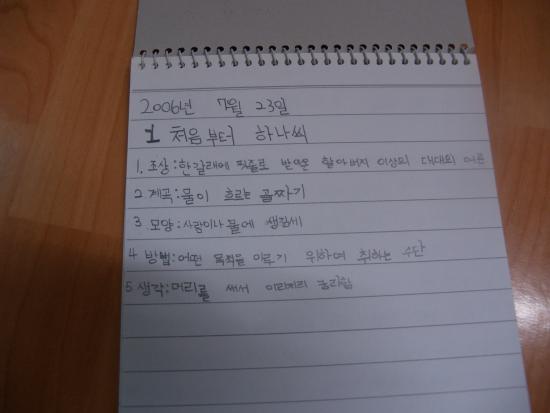 2006년 7월 23일
1 처음부터 하나씩
1. 조상:한갈래에 핏줄로 받아온 할아버지 이상의 대대의 어른
2 계곡:물이 흐르는 골짜기
3 모양:사람이나 물에 생김세
4 방법:어떤 목적을 이루기 위하여 취하는 수단
5 생각:머리를 써서 이리저리 궁리함